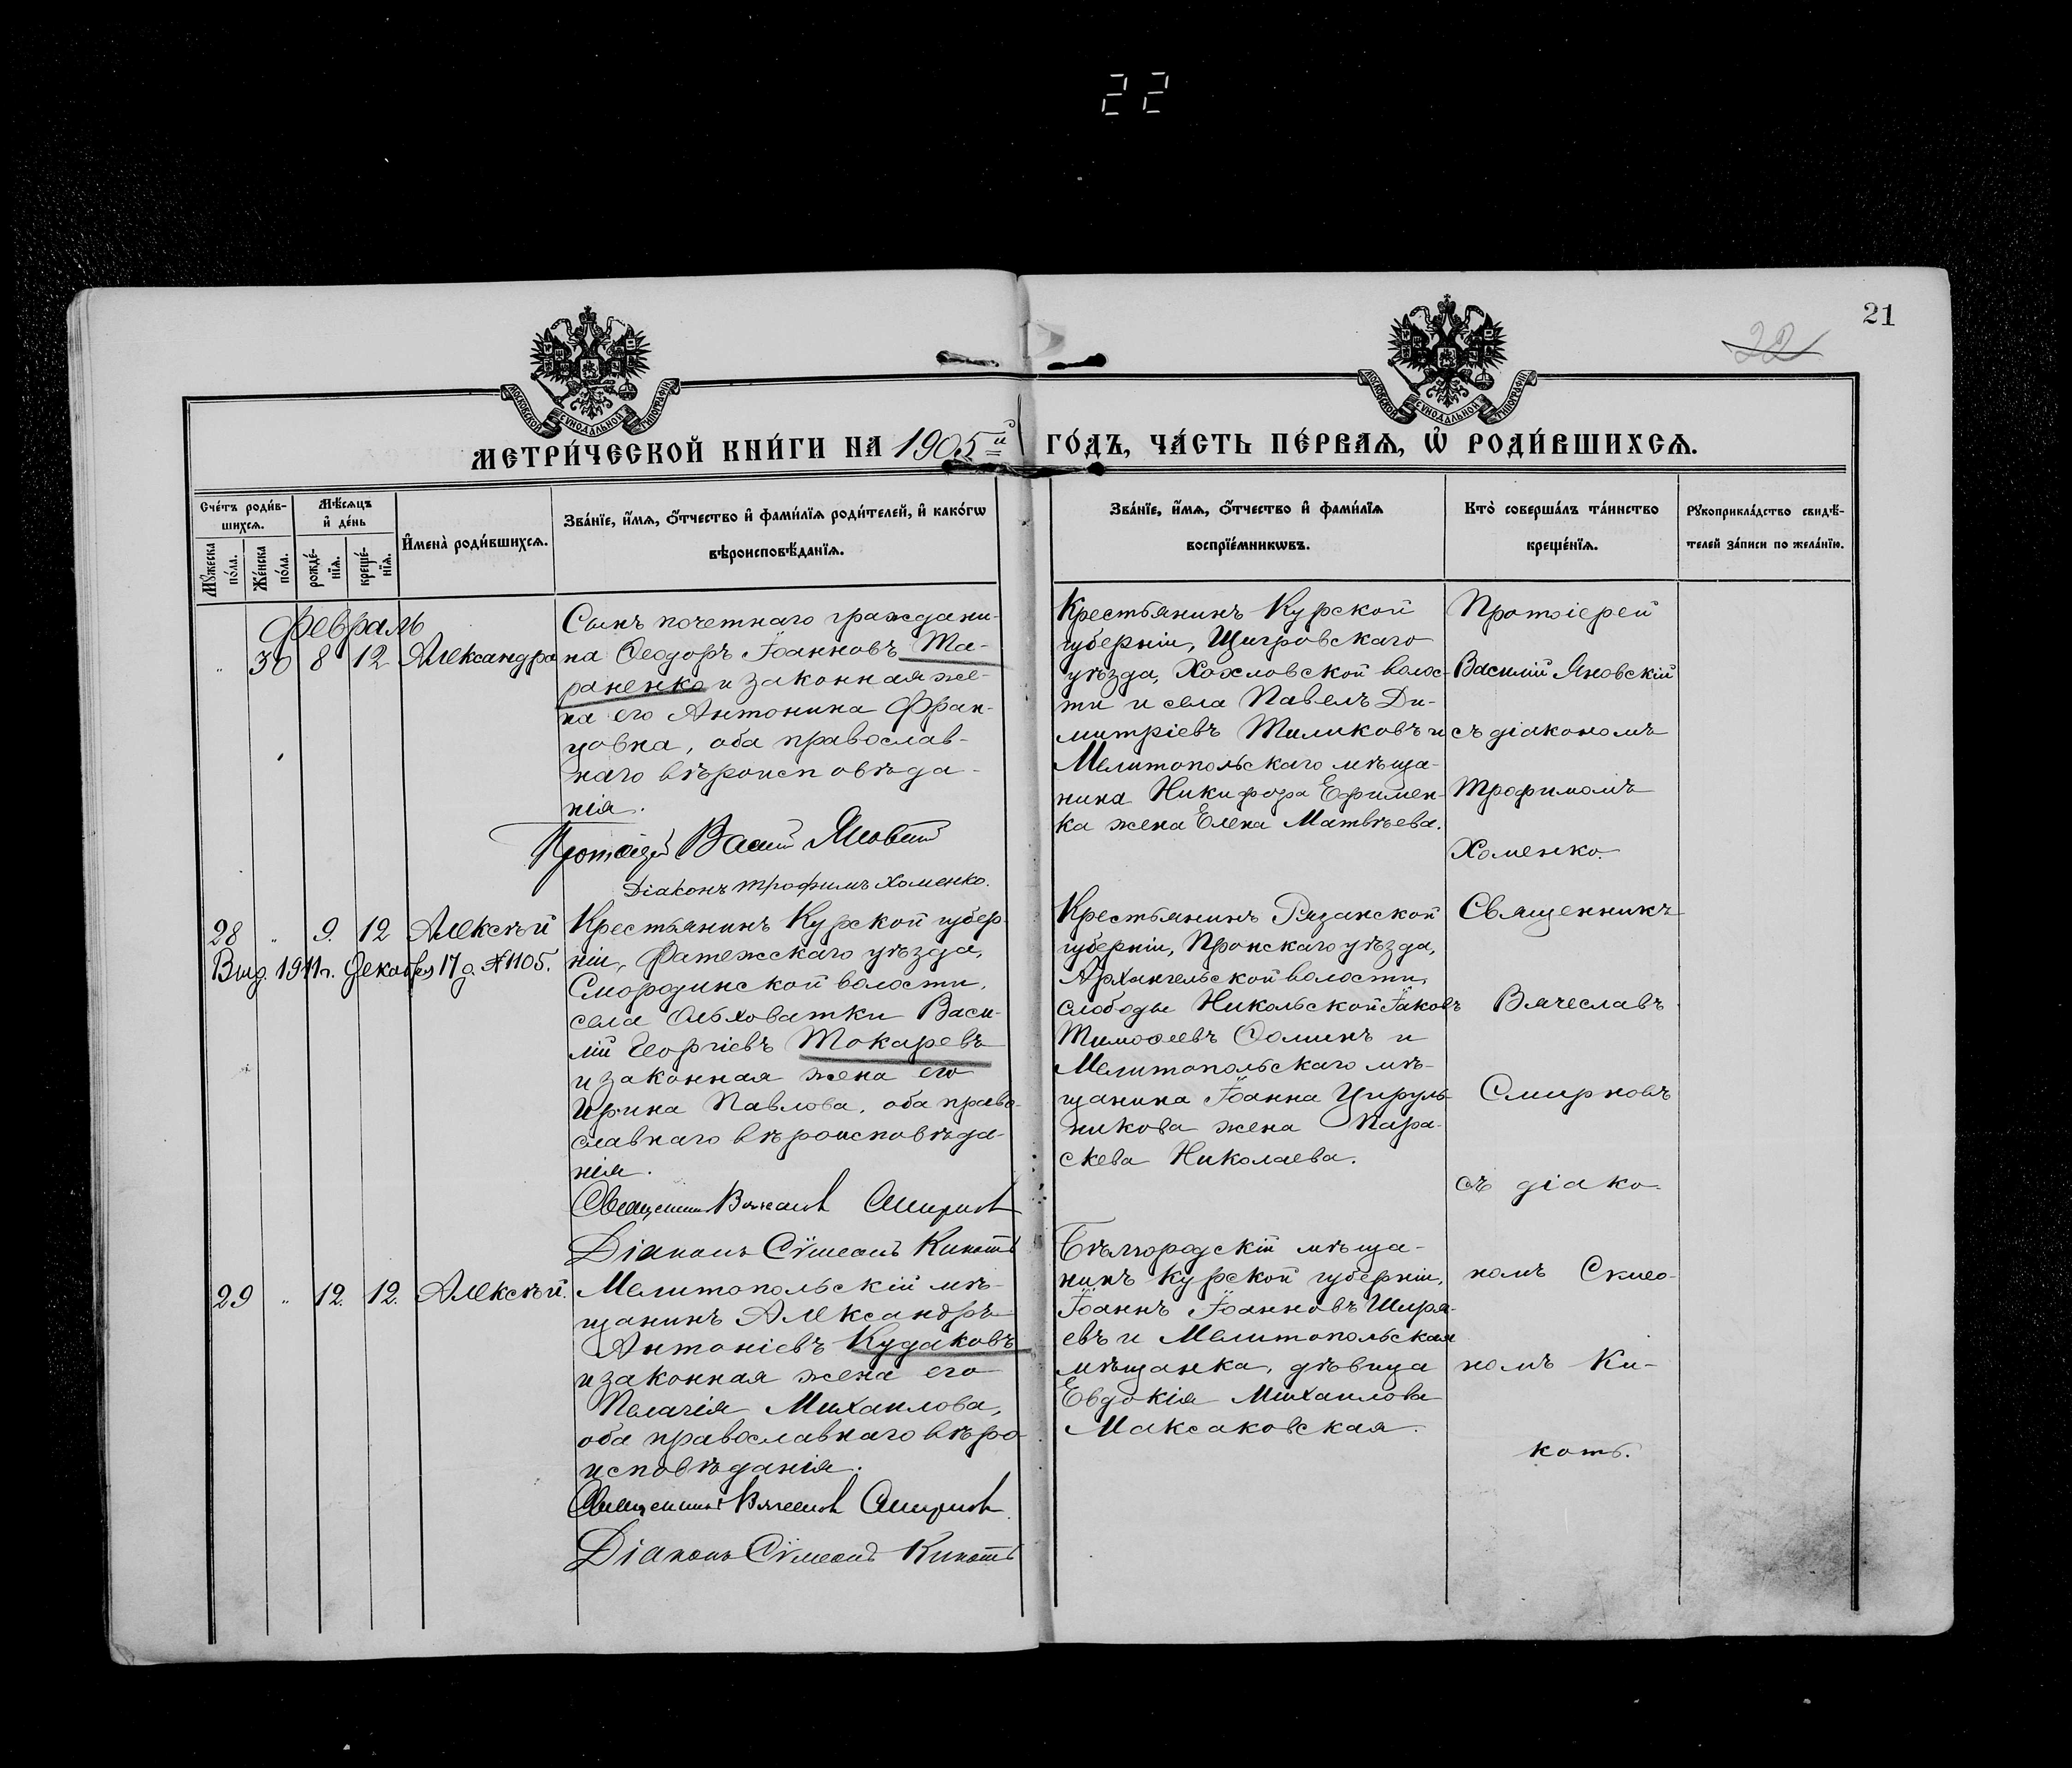 22
21
22
МОСКОВСКОЙ СѴНОДАЛЬНОЙ ТИПОГРАФІИ
МОСКОВСКОЙ СѴНОДАЛЬНОЙ ТИПОГРАФІИ
МЕТРИ́ЧЕСКОЙ КНИ́ГИ НА 1905й ГО́ДЪ, ЧА́СТЬ ПЕ́РВАѦ, Ѿ РОДИ́ВШИХСѦ.
Сче́тъ роди́в-
шихсѧ.
Мꙋ́жеска по́ла.
Же́нска по́ла.
Мѣ́сѧцъ
и҆ де́нь
рожде́-
нїѧ.
креще́-
нїѧ.
И҆мена̀ роди́вшихсѧ.
Зва́нїе, и҆́мѧ, ѻ҆́тчество и҆ фами́лїѧ роди́телей, и҆ како́гѡ
вѣроисповѣ́данїѧ.
Зва́нїе, и҆́мѧ, ѻ҆́тчество и҆ фами́лїѧ
воспрїе́мникѡвъ.
Кто̀ соверша́лъ та́инство
креще́нїѧ.
Рꙋкоприкла́дство свидѣ́-
телей за́писи по жела́нїю.
Февраль
„ 30 8 12 Александра
Сынъ почетнаго граждани-
на Ѳеодоръ Іоанновъ Та-
раненко и законная же-
на его Антонина Фран-
цовна, оба православ-
наго вѣроисповѣда-
нія.
Протоіерей Василій Яновскій
Діаконъ Трофимъ Хоменко.
Крестьянинъ Курской
губерніи, Щигровскаго
уѣзда, Хохловской волос-
ти и села Павелъ Ди-
митріевъ Тиликовъ и
Мелитопольскаго мѣща-
нина Никифора Ефимен-
ка жена Елена Матвѣева.
Протоіерей
Василій Яновскій
съ діакономъ
Трофимомъ
Хоменко.
28 „ 9. 12 Алексѣй
Выд. 1911 г. Декабря 17 д. № 1105.
Крестьянинъ Курской губер-
ніи, Фатежскаго уѣзда,
Смородинской волости,
села Ольховатки Васи-
лій Георгіевъ Токаревъ
и законная жена его
Ирина Павлова, оба право-
славнаго вѣроисповѣда-
нія.
Священникъ Вячеславъ Смирновъ
Діаконъ Сѵмеонъ Кикоть
Крестьянинъ Рязанской
губерніи, Пронскаго уѣзда,
Архангельской волости,
слободы Никольской Іаковъ
Тимоѳеевъ Ѳоминъ и
Мелитопольскаго мѣ-
щанина Іоанна Цируль-
никова жена Пара-
скева Николаева.
Священникъ
Вячеславъ
Смирновъ
съ діако-
номъ Сѵмео-
номъ Ки-
коть.
29 „ 12. 12. Алексѣй.
Мелитопольскій мѣ-
щанинъ Александръ
Антоніевъ Кудаковъ
и законная жена его
Пелагія Михаилова,
оба православнаго вѣро-
исповѣданія.
Священникъ Вячеславъ Смирновъ
Діаконъ Сѵмеонъ Кикоть
Бѣлгородскій мѣща-
нинъ Курской губерніи,
Іоаннъ Іоанновъ Ширя-
евъ и Мелитопольская
мѣщанка, дѣвица
Евдокія Михаилова
Максаковская.